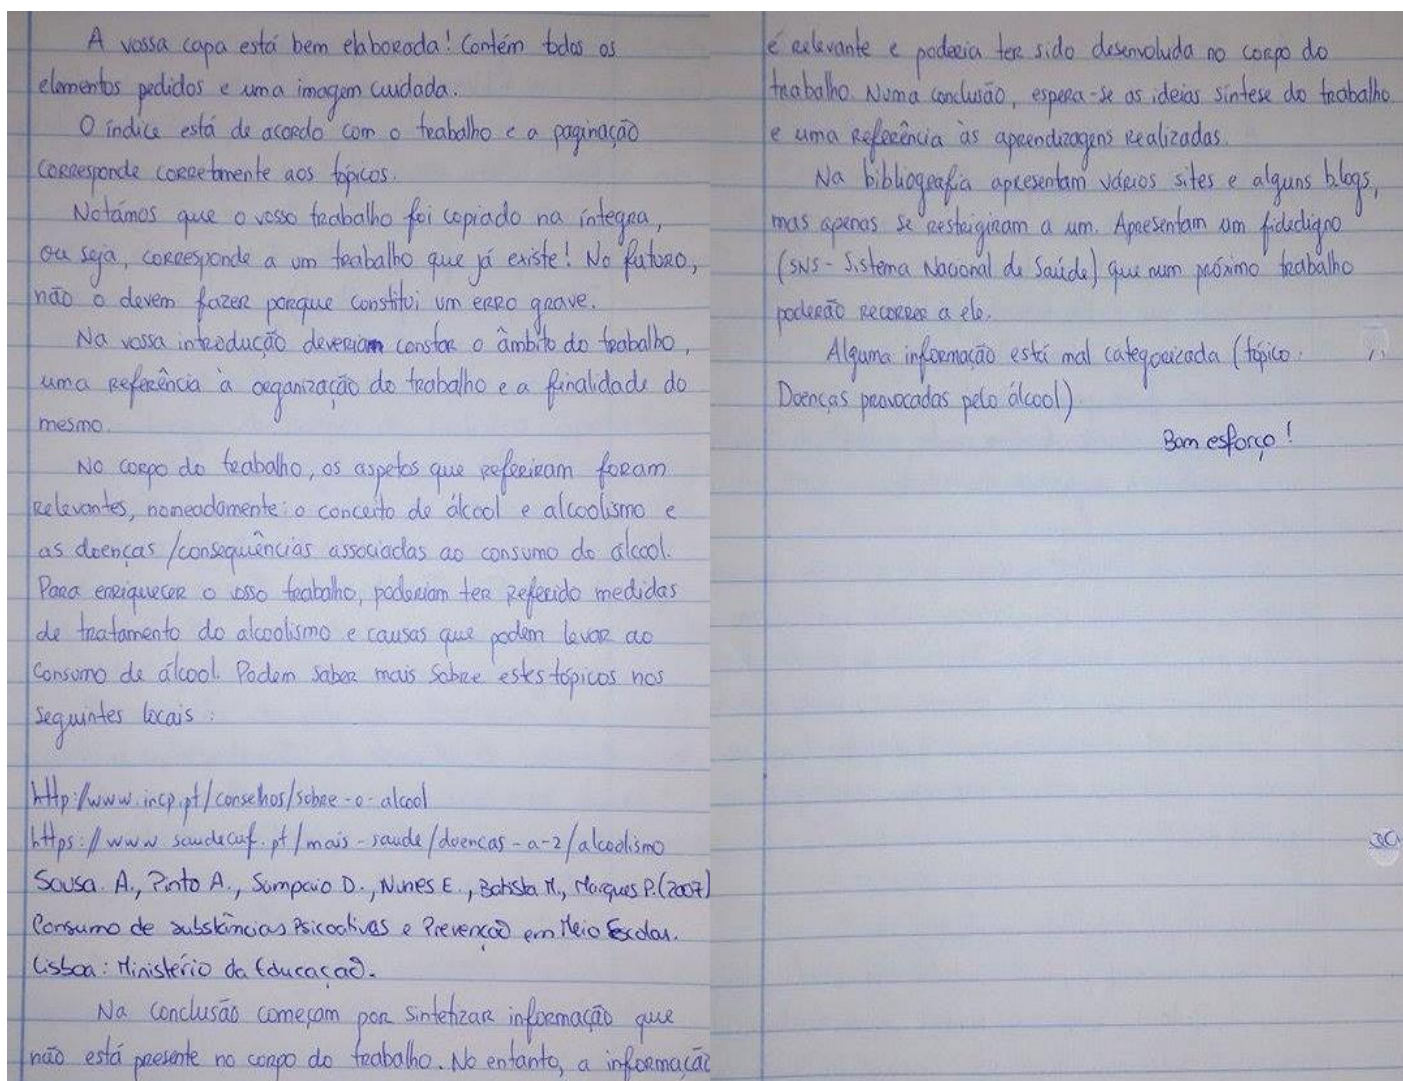 A vossa capa está bem elaborada! Contém todos os
elementos pedidos e uma imagem cuidada.
O índice está de acordo com o trabalho e a paginação
corresponde corretamente aos tópicos.
Notámos que o vosso trabalho foi copiado na íntegra,
ou seja, corresponde a um trabalho que já existe! No futuro,
não o devem fazer porque constitui um erro grave.
Na vossa introdução deveriam constar o âmbito do trabalho,
uma referência à organização do trabalho e a finalidade do
mesmo.
No corpo do trabalho, os aspetos que referiram foram
relevantes, nomeadamente: o conceito de álcool e alcoolismo e
as doenças/consequências associadas ao consumo do álcool.
Para enriquecer o vosso trabalho, poderiam ter referido medidas
de tratamento do alcoolismo e causas que podem levar ao
consumo de álcool. Podem saber mais sobre estes tópicos nos
seguintes locais:
http://www.incp.pt/conselhos/sobre-o-alcool
https://www.saudecuf.pt/mais-saude/doencas-a-z/alcoolismo
Sousa. A., Pinto A., Sampaio D., Nunes E., Batista M., Marques P. (2007)
Consumo de substâncias Psicoativas e Prevenção em Meio Escolar.
Lisboa: Ministério da Educação.
Na conclusão começam por sintetizar informação que
não está presente no corpo do trabalho. No entanto, a informação
é relevante e poderia ter sido desenvoluda no corpo do
trabalho. Numa conclusão, espera-se as ideias síntese do trabalho
e uma referência às aprendizagens realizadas.
Na bibliografia apresentam vários sites e alguns blogs,
mas apenas se restrigiram a um. Apresentam um fidedigno
(SNS - Sistema Nacional de Saúde) que num próximo trabalho
poderão recorrer a ele.
Alguma informação está mal categorizada (tópico:
Doenças provocadas pelo álcool).
Bom esforço!